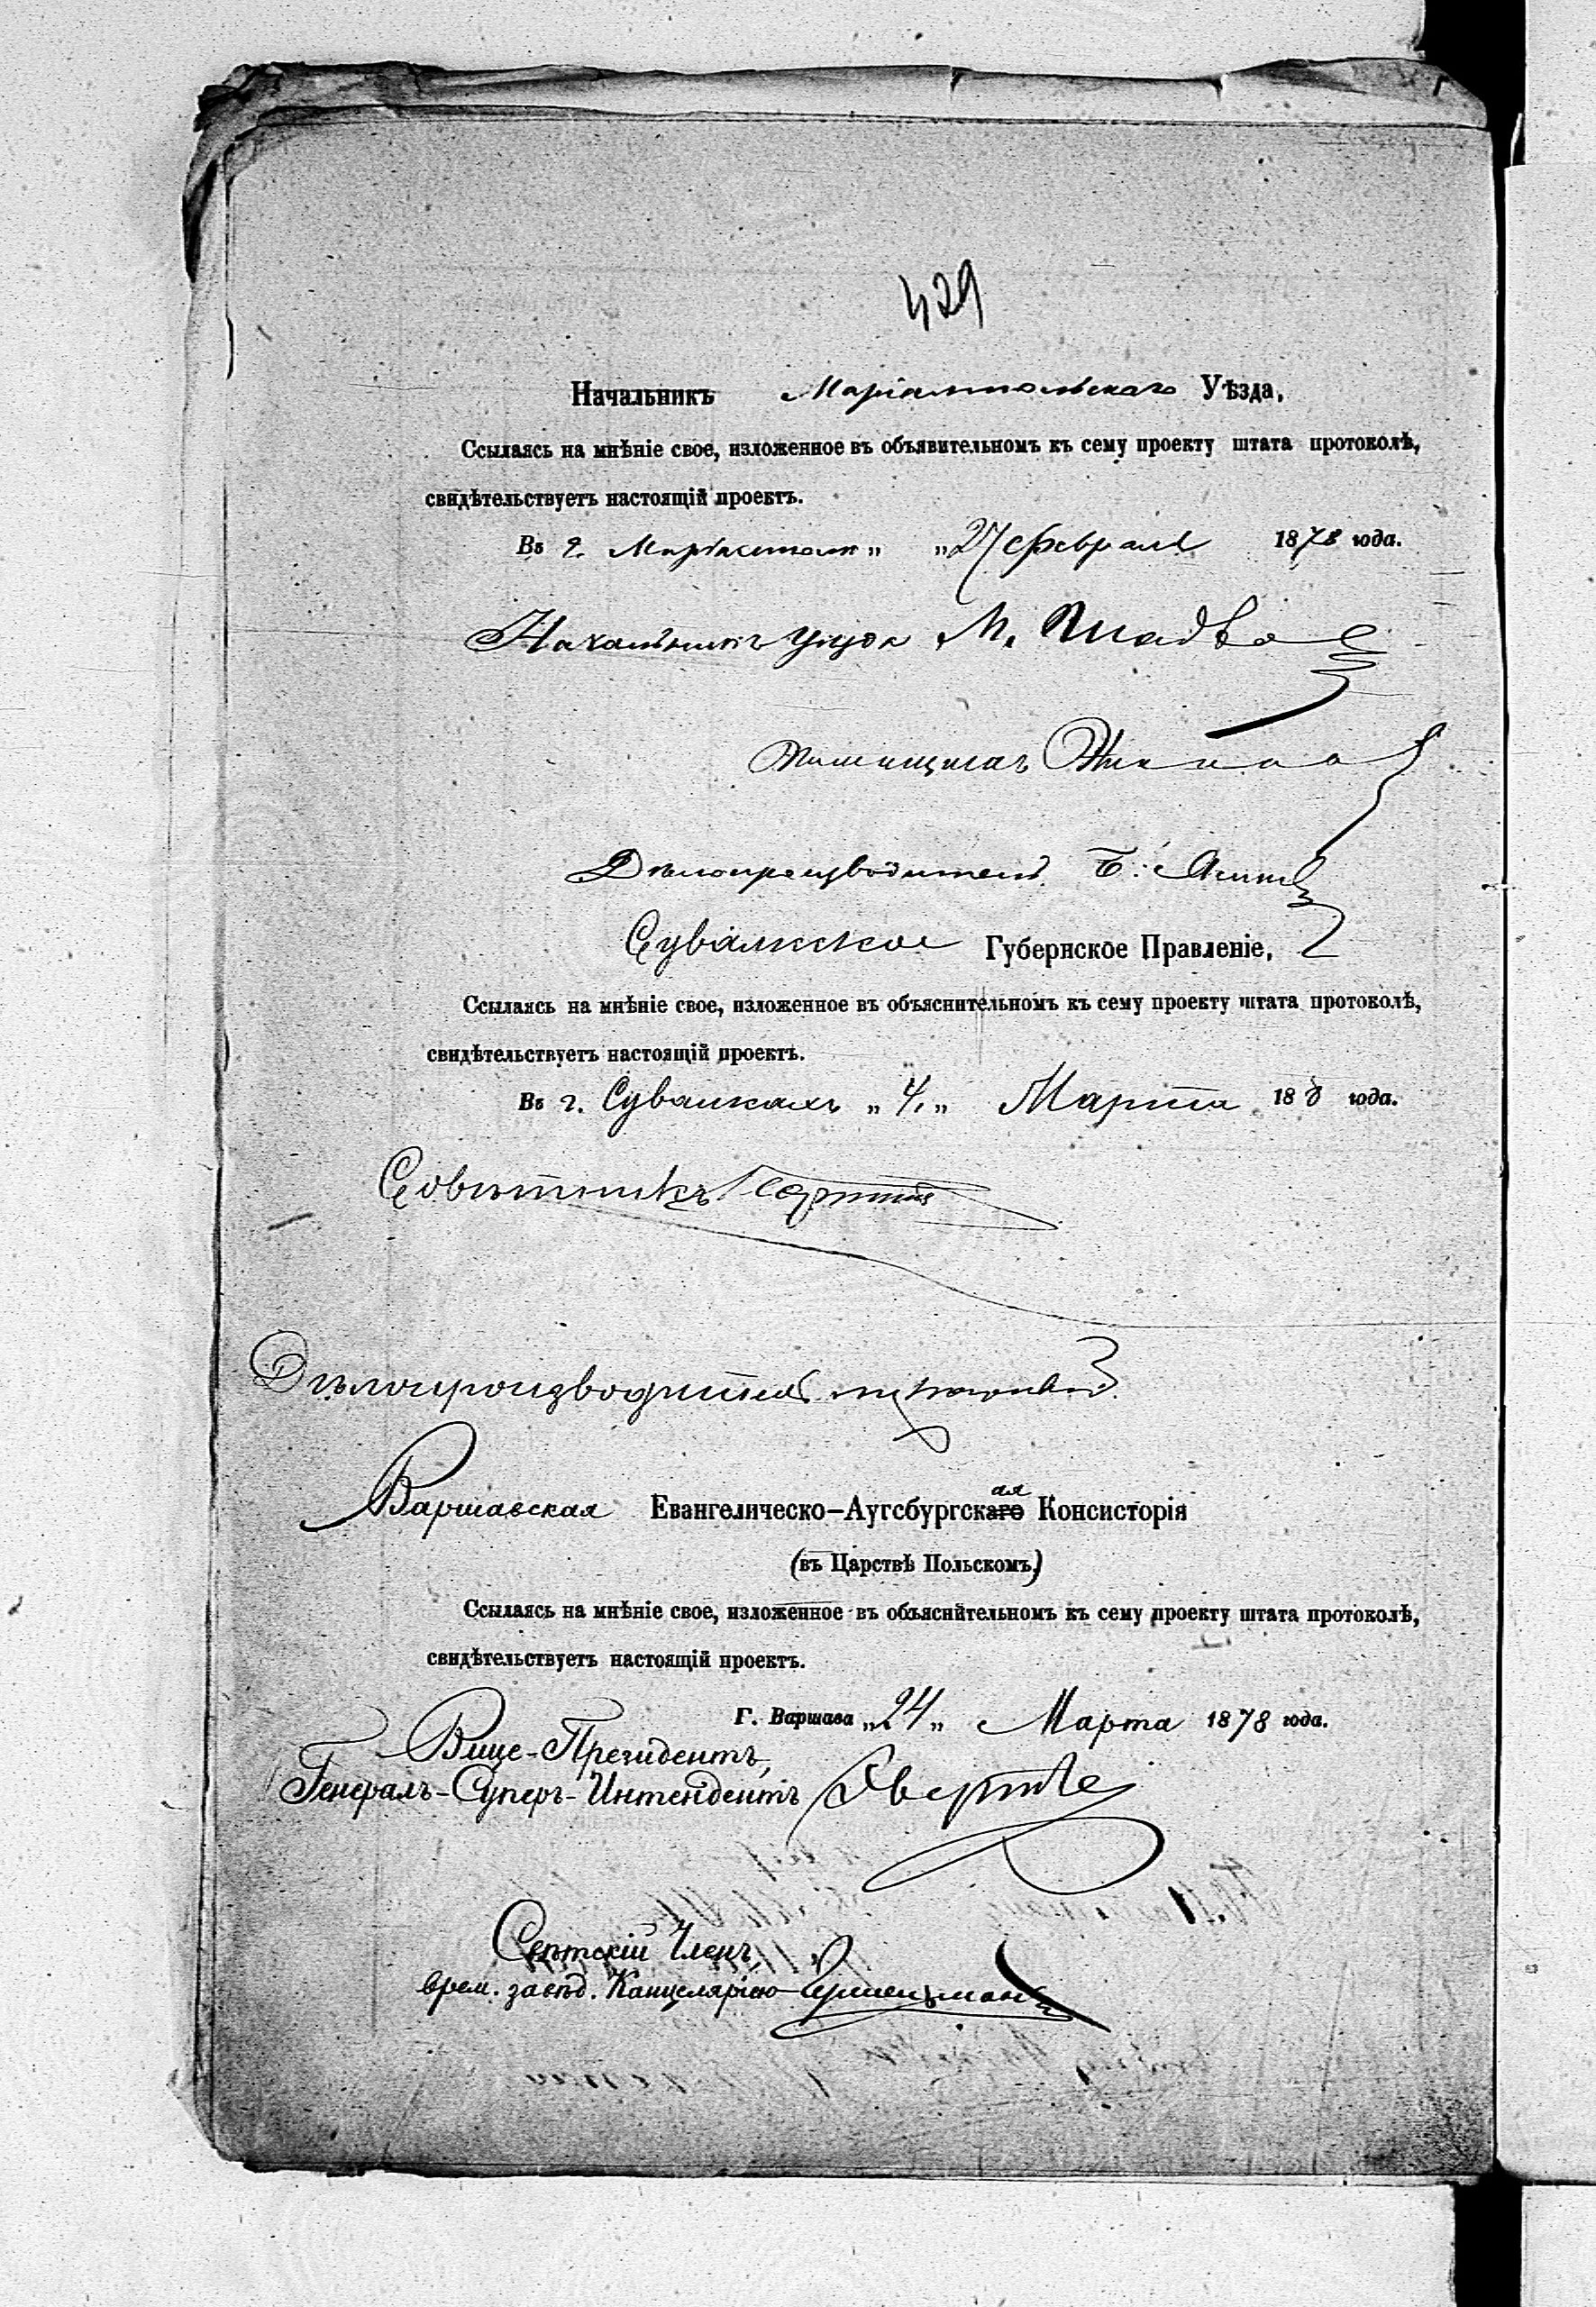 429
Начальникъ Маріампольскаго Уѣзда,
Ссылаясь на мнѣніе свое, изложенное въ объявительномъ къ сему проекту штата протоколѣ,
свидѣтельствуетъ настоящій проектъ.
Въ г. Маріамполѣ „ „27 Февраля 1878 года.
Начальникъ уѣзда М.
Помощникъ
Дѣлопроизводитель Б.
Сувалкское Губернское Правленіе,
Ссылаясь на мнѣніе свое, изложенное въ объяснительномъ къ сему проекту штата протоколѣ,
свидѣтельствуетъ настоящій проектъ.
Въ г. Сувалкахъ „4„ Марта 18 8 года.
Совѣтникъ
Дѣлопроизводитель
Варшавская Евангелическо-Аугсбургская Консисторія
(въ Царствѣ Польскомъ)
Ссылаясь на мнѣніе свое, изложенное въ объяснительномъ къ сему проекту штата протоколѣ,
свидѣтельствуетъ настоящій проектъ.
Г. Варшава „24„ Марта 1878 года.
Вице-Президентъ,
Генералъ-Суперъ-Интендентъ Эвертъ
Свѣтскій Членъ,
врем. завѣд. Канцеляріею